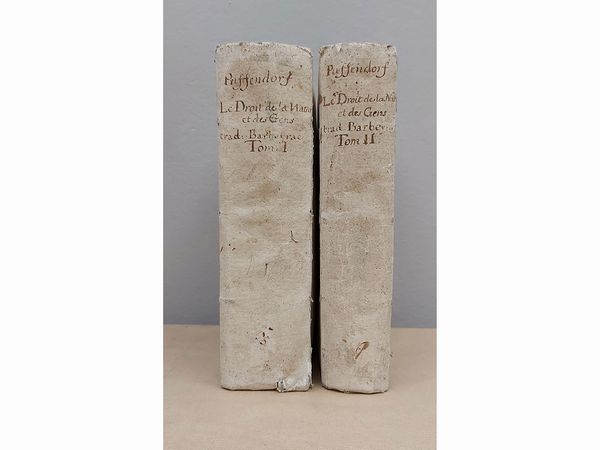 Puffendorf
Le Droit de la Natu
et des Gens
trad. Barbeirac
Tom I
Puffendorf
Le Droit de la Nat
et des Gens
trad Barbeyr
Tom II